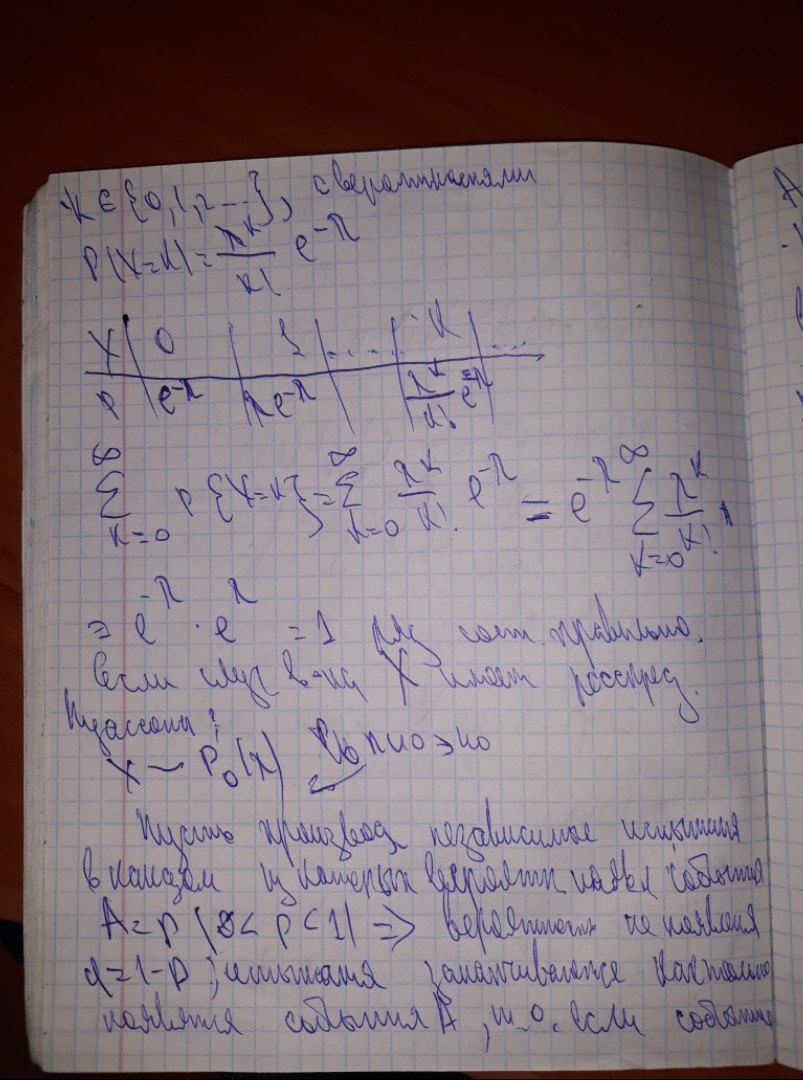 K ∈ {0, 1, 2 ...}, с вероятностями
P(X=K) = λ^K / K! e^-λ
X | 0 | 1 | ... | K | ...
P | e^-λ | λe^-λ | | λ^K / K! e^-λ |
∞ Σ K=0 P{X=K} = ∞ Σ K=0 λ^K / K! e^-λ = e^-λ ∞ Σ K=0 λ^K / K!
= e^-λ · e^λ = 1 ряд сост. правильно.
если случ в-на X имеет распред.
Пуассона:
X ~ P₀(λ)
Пусть производ независимые испытания
в каждом из которых вероятн появл события
A = p (0 < p < 1) => вероятность не появления
q = 1-p; испытания заканчиваются как только
появятся события A, т.о. если событие